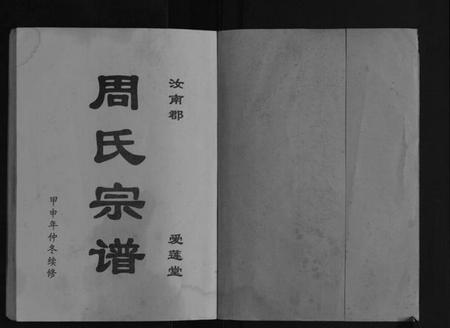 汝南郡
爱莲堂
周氏宗谱
甲申年仲冬续修